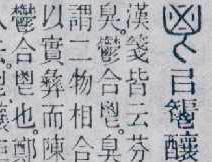 㠯釀
漢箋皆云芬
臭。鬱合鬯。
謂二物相合臭
以實彝而陳
鬱合鬯也。鄭